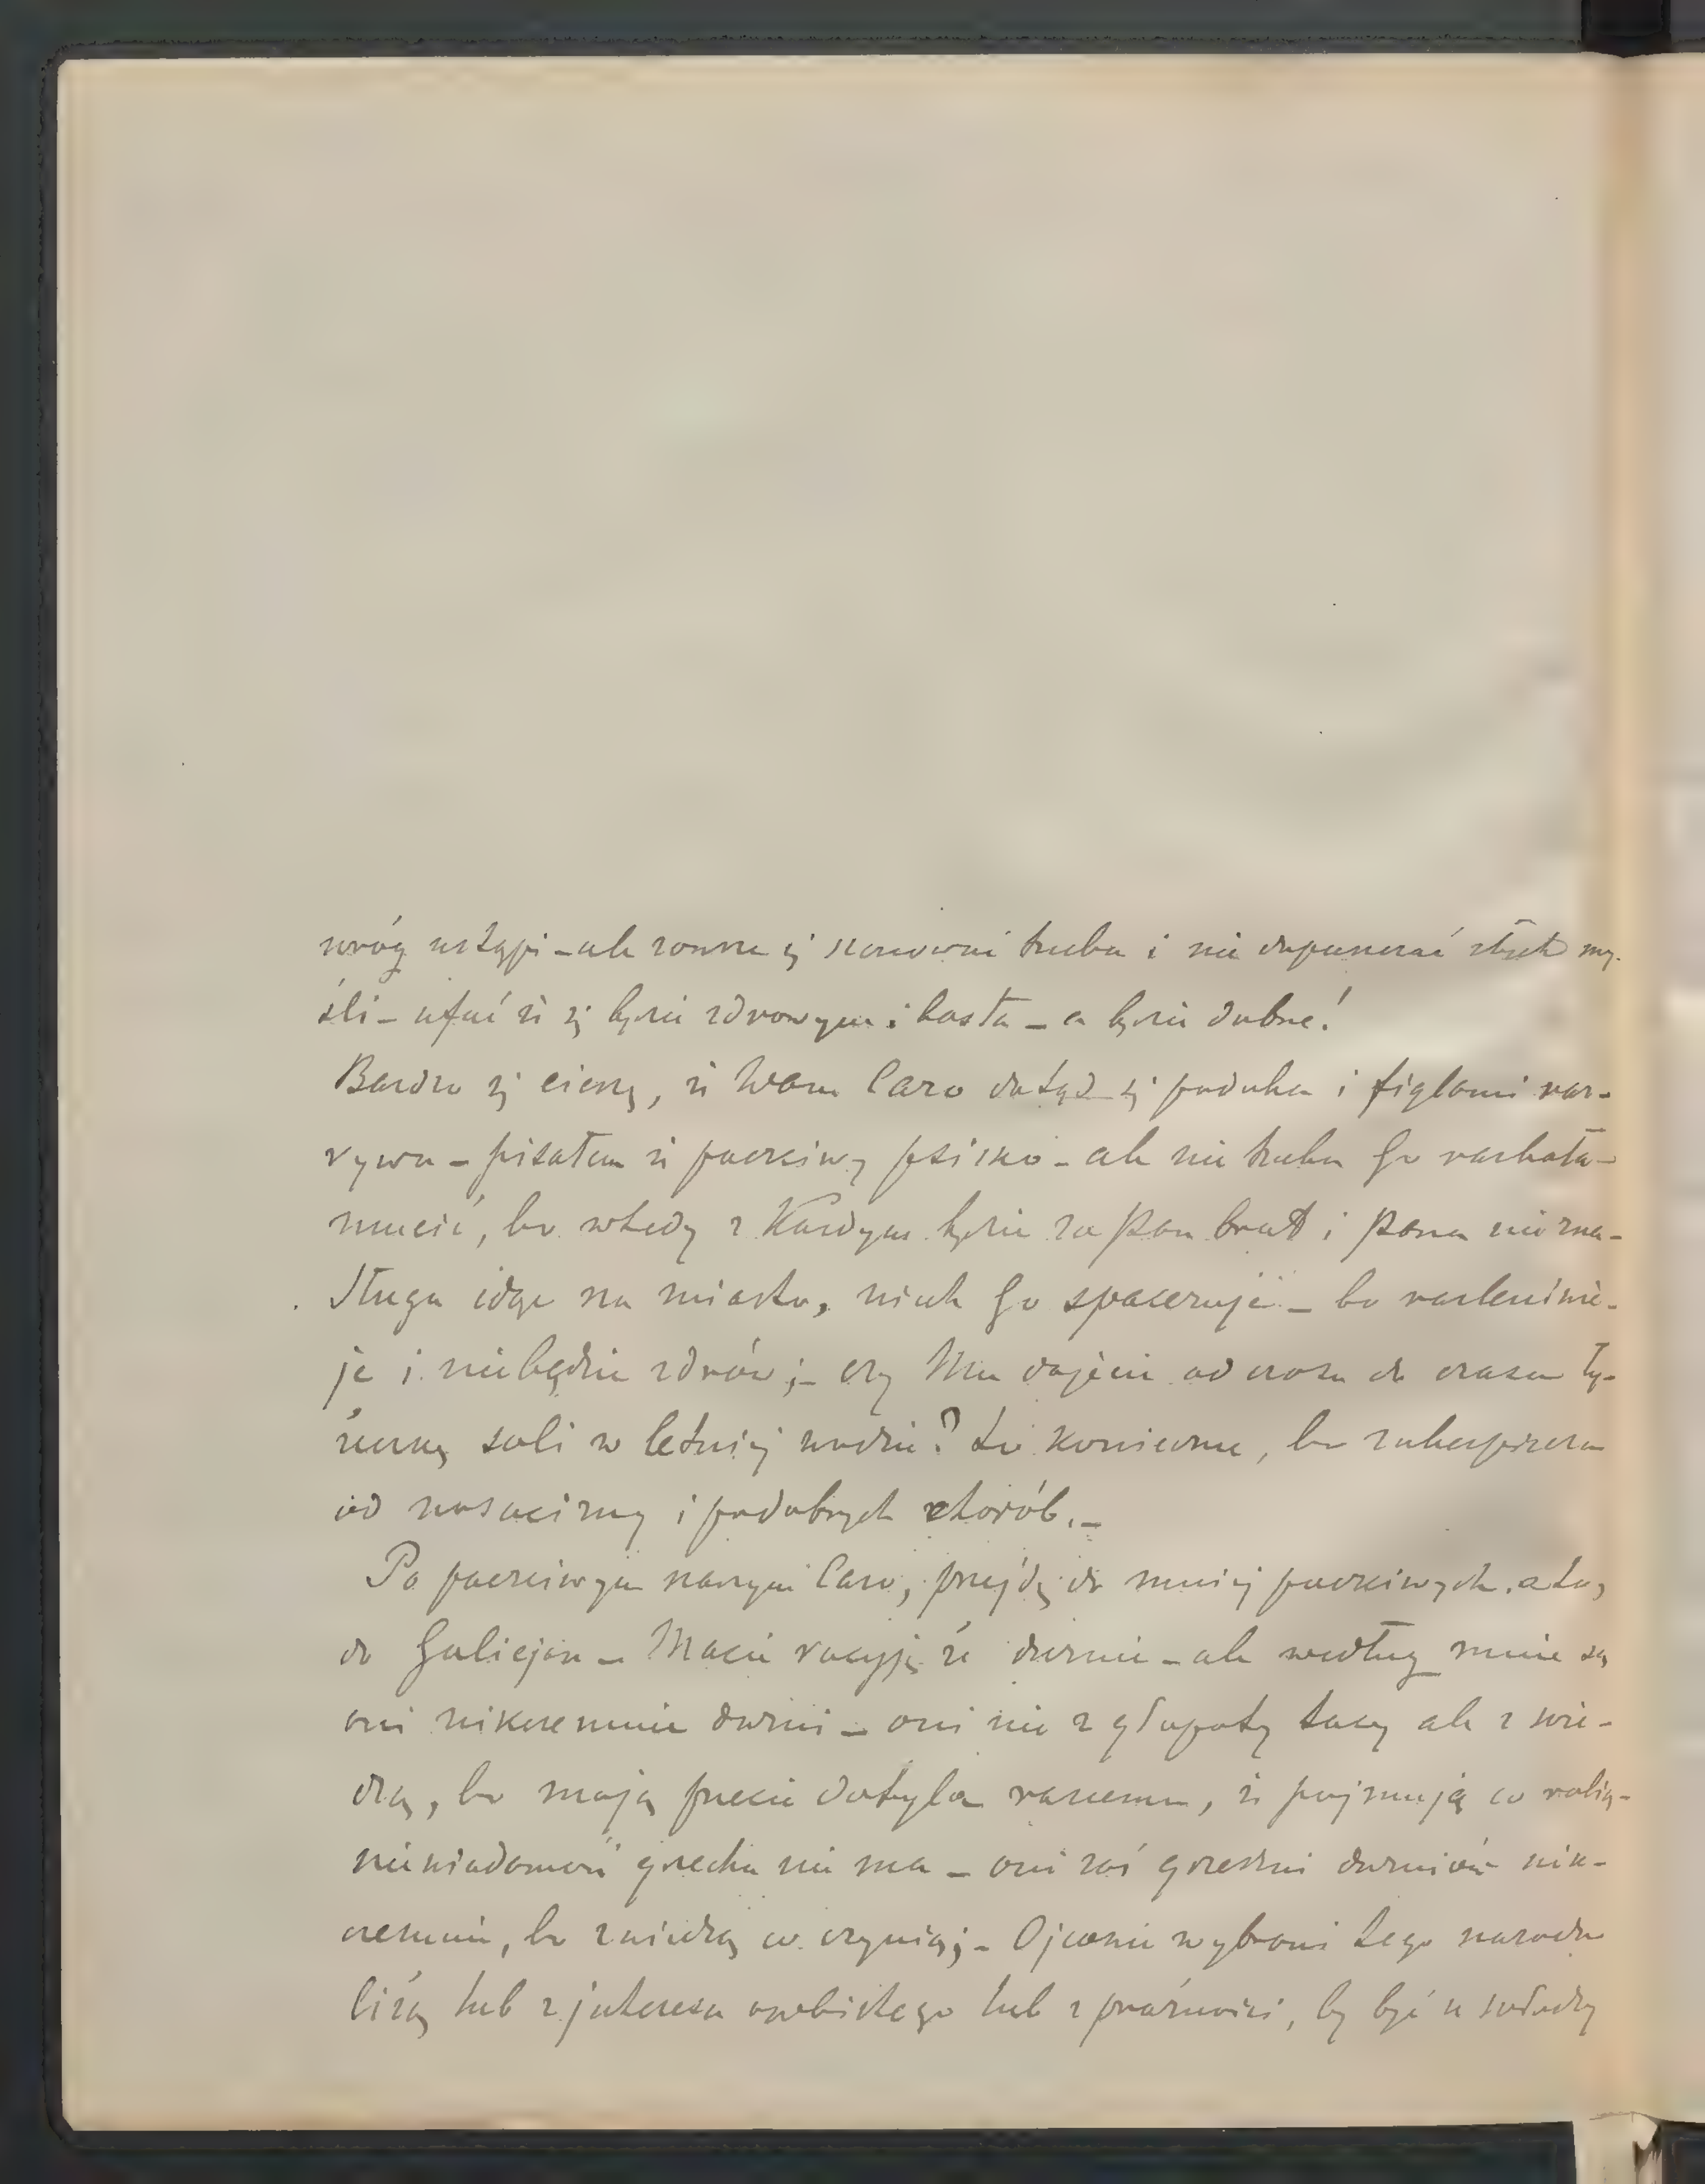 wróg ustąpi – ale zawsze się szanować trzeba i nie dopuszczać złych my-
śli – ufać że się będzie zdrowym i basta – a będzie dobrze!
Bardzo się cieszę, że Wam Caro dotąd się podoba i figlami roz-
rywa – pisałem że poczciwy psisko – ale nie trzeba Go rozbała-
mucić, bo wtedy z Każdym będzie za pan brat i pana nie zna –
Sługa idąc na miasto, niech Go spaceruje – bo rozleniwie-
je i niebędzie zdrów; – czy Mu dajecie od czasu do czasu ły-
żeczkę soli w letniej wodzie? to konieczne, bo zabezpiecza
od nosacizny i podobnych chorób. –
Po poczciwym naszym Caro, przejdę do mniej poczciwych, a to,
do Galicjan – Macie racyję że durnie – ale według mnie są
oni nikczemnie durni – oni nie z głupoty tacy ale z wie-
dzą, bo mają przecie dotyla rozumu, że pojmują co robią –
nieświadomość grzechu nie ma – oni zaś grzeszni durniów nik-
czemnie, bo z wiedzą co czynią; – Ojcowie wybrani tego narodu
liżą lub z interesu osobistego lub z próżności, by być u